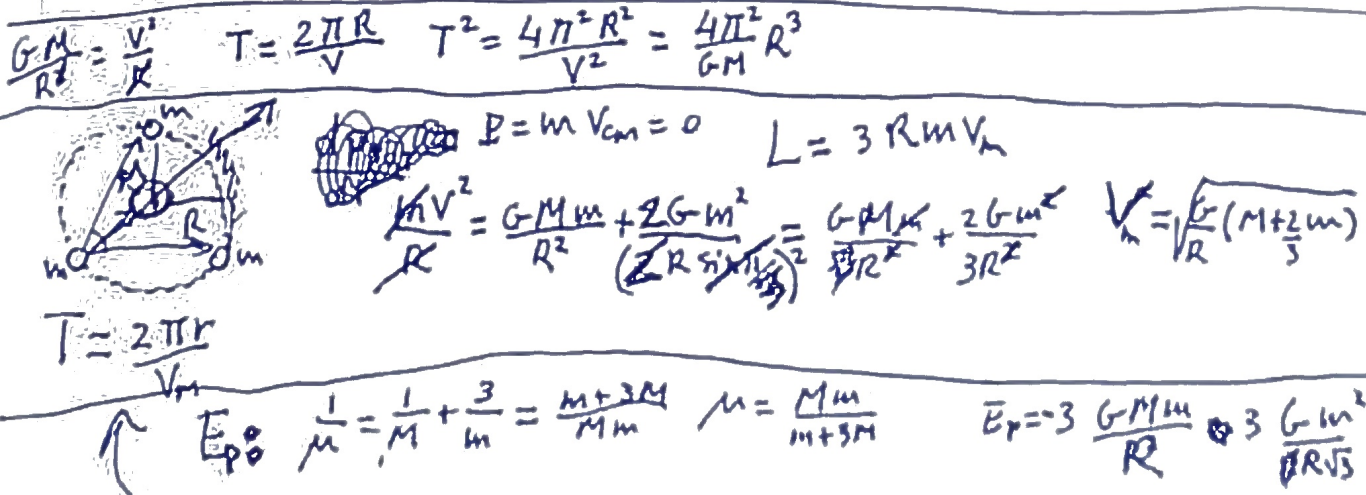 GM/R² = V²/R T = 2πR/V T² = 4π²R²/V² = 4π²/GM R³
m
P = m V_cm = 0 L = 3 R m V_m
M
R
m m
mV²/R = GMm/R² + 2Gm²/( )² = GMm/R² + 2Gm²/3R² V_m = √(G/R (M + 2/3 m))
T = 2πr/V_m
E_p: 1/μ = 1/M + 3/m = m+3M/Mm μ = Mm/m+3M E_p = -3 GMm/R 3 Gm²/R√3